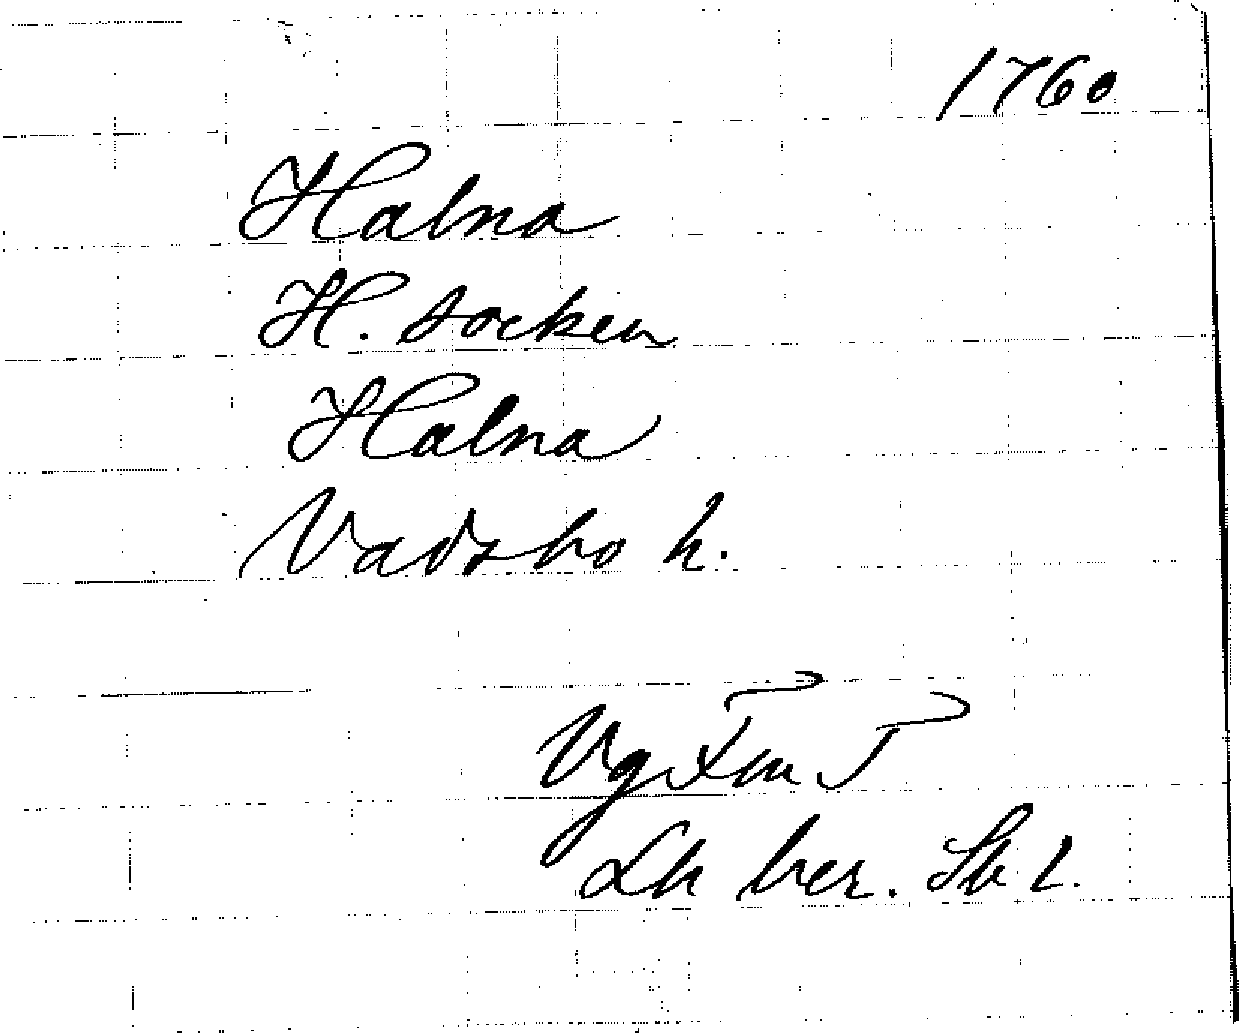 1760
Halna
H. socken
Halna
Vadsbo h.
Vg Fm T
Lh ber. Sb 1.